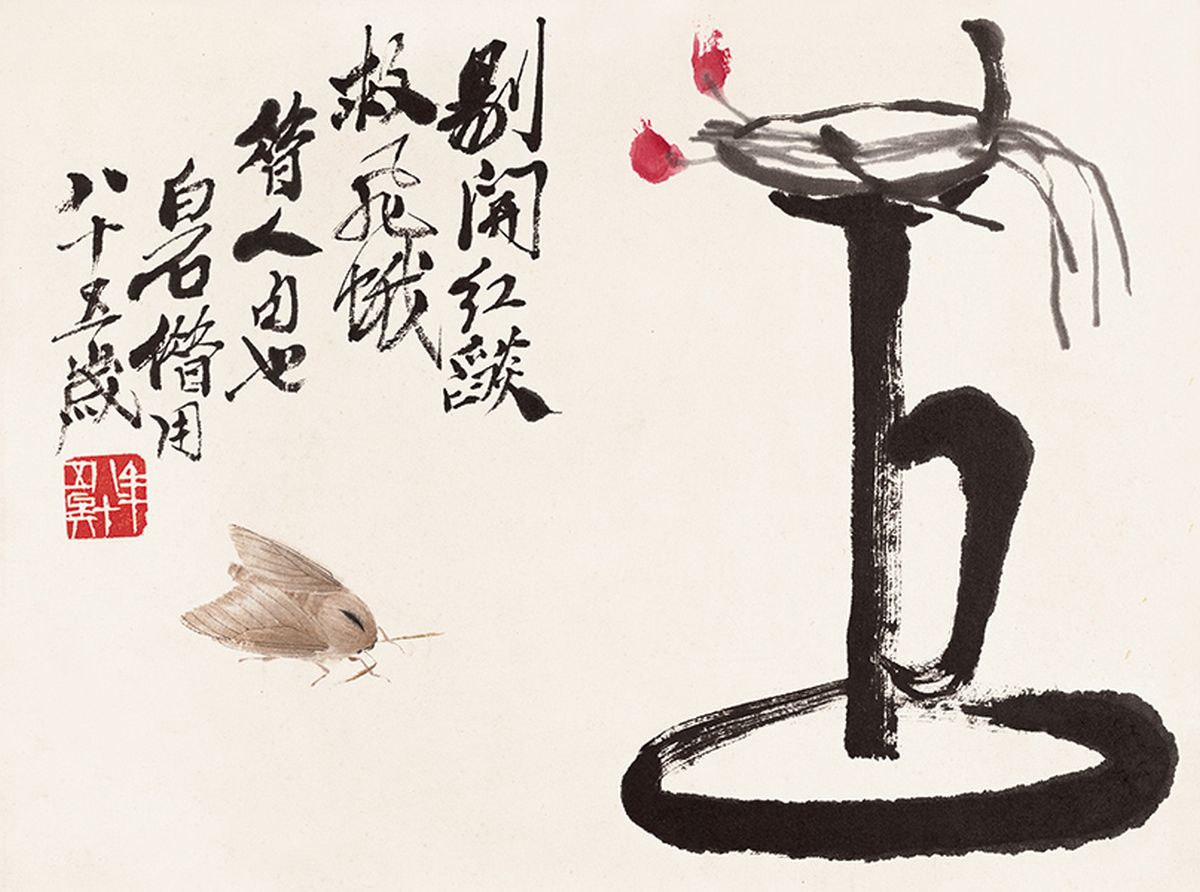 剔開紅燄
救飛蛾
昔人句也
白石借用
八十五歲
年八十五矣